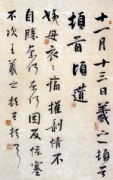 十一月十三日羲之頓首
頓首頃遘
姨母哀哀痛摧剝情不
自勝奈何奈何因反慘塞
不次王羲之頓首頓首